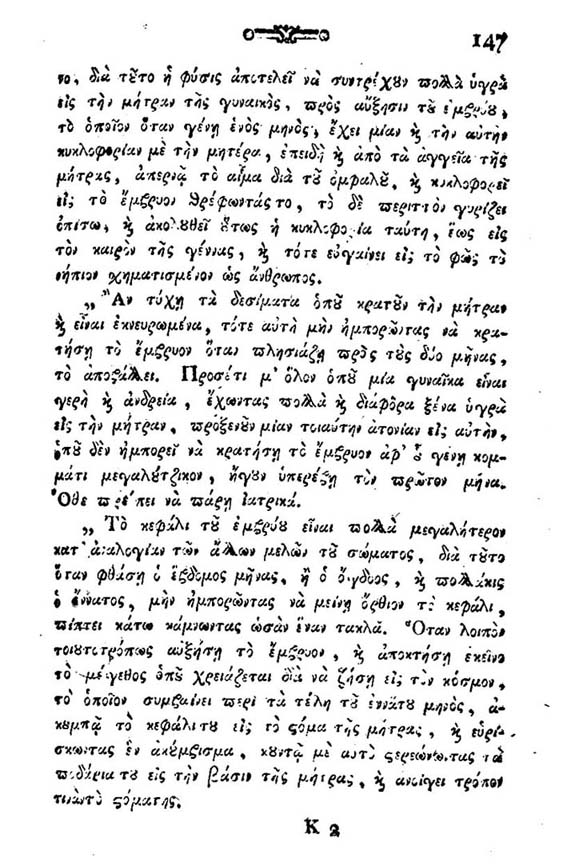 147
το, διὰ τȣ̃το ἡ φύσις ἀποτελεῖ νὰ συντρέχȣν πολλὰ ὑγρὰ
εἰς τὴν μήτραν τῆς γυναικὸς, πρὸς αὔξησιν τȣ̃ ἐμβρύȣ,
τὸ ὁποῖον ὅταν γένῃ ἑνὸς μηνὸς, ἔχει μίαν ϗ τὴν αὐτὴν
κυκλοφορίαν μὲ τὴν μητέρα, ἐπειδὴ ϗ ἀπὸ τὰ ἀγγεῖα τῆς
μήτρας, ἀπερνᾷ τὸ αἷμα διὰ τȣ̃ ὀμφαλȣ̃, ϗ κυκλοφορεῖ
εἰς τὸ ἔμβρυον θρέφωντάς το, τὸ δὲ περιττὸν γυρίζει
ὀπίσω, ϗ ἀκολȣθεῖ ȣ̔́τως ἡ κυκλοφορία ταύτη, ἕως εἰς
τὸν καιρὸν τῆς γέννας, ϗ τότε εὐγαίνει εἰς τὸ φῶς τὸ
νήπιον χηματισμένον ὡς ἄνθρωπος.
„ Ἂν τύχῃ τὰ δεσίματα ὁπȣ̃ κρατȣ̃ν τὴν μήτραν
ϗ εἶναι ἐκνευρωμένα, τότε αὐτὴ μὴν ἠμπορῶντας νὰ κρα-
τήσῃ τὸ ἔμβρυον ὅταν πλησιάζῃ πρὸς τȣ̀ς δύο μῆνας,
τὸ ἀποβάλλει. Προσέτι μ' ὅλον ὁπȣ̃ μία γυναῖκα εἶναι
γερὴ ϗ ἀνδρεία, ἔχωντας πολλὰ ϗ διάφορα ξένα ὑγρὰ
εἰς τὴν μήτραν, πρόξενȣ̃ν μίαν τοιαύτην ἀτονίαν εἰς αὐτὴν,
ὁπȣ̃ δὲν ἠμπορεῖ νὰ κρατήσῃ τὸ ἔμβρυον ἀφ' ȣ̔͂ γένῃ κομ-
μάτι μεγαλȣ́τζικον, ἤγȣν ὑπερέβῃ τὸν πρῶτον μῆνα.
Ὅθε πρέπει νὰ πάρῃ ἰατρικά.
„ Τὸ κεφάλι τȣ̃ ἐμβρύȣ εἶναι πολλὰ μεγαλήτερον
κατ' ἀναλογίαν τῶν ἄλλων μελῶν τȣ̃ σώματος, διὰ τȣ̃το
ὅταν φθάσῃ ὁ ἕβδομος μῆνας, ἢ ὁ ὄγδοος, ϗ πολλάκις
ὁ ἔννατος, μὴν ἠμπορῶντας νὰ μείνῃ ὄρθιον τὸ κεφάλι,
πίπτει κάτω κάμνωντας ὡσὰν ἕναν τακλᾶ. Ὅταν λοιπὸν
τοιȣτοτρόπως αὐξήσῃ τὸ ἔμβρυον, ϗ ἀποκτήσῃ ἐκεῖνο
τὸ μέγεθος ὁπȣ̃ χρειάζεται διὰ νὰ ζήσῃ εἰς τὸν κόσμον,
τὸ ὁποῖον συμβαίνει περὶ τὰ τέλη τȣ̃ ἐννάτȣ μηνὸς, ἀ-
κȣμπᾷ τὸ κεφάλι τȣ εἰς τὸ ϛόμα τῆς μήτρας, ϗ εὑρί-
σκωντας ἓν ἀκȣ́μβισμα, κȣντᾷ μὲ αὐτὸ ϛερεώνωντας τὰ
ποδάρια τȣ εἰς τὴν βάσιν τῆς μήτρας, ϗ ἀνοίγει τρόπον
τινὰ τὸ ϛόμα της.
K 2